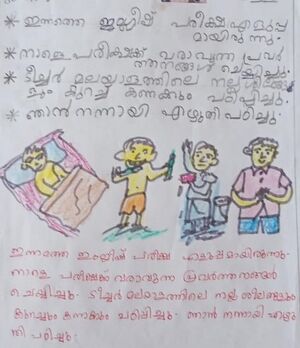 * ഇന്നത്തെ ഇംഗ്ലീഷ് പരീക്ഷ എളുപ്പ
മായിരുന്നു.
* നാളെ പരീക്ഷക്ക് വരാവുന്ന പ്രവർ
ത്തനങ്ങൾ ചെയ്യിച്ചു.
* ടീച്ചർ മലയാളത്തിലെ നല്ല ശീലങ്ങ
ളും കുറച്ച് കണക്കും പഠിപ്പിച്ചു.
* ഞാൻ നന്നായി എഴുതി പഠിച്ചു.
ഇന്നത്തെ ഇംഗ്ലീഷ് പരീക്ഷ എളുപ്പമായിരുന്നു.
നാളെ പരീക്ഷക്ക് വരാവുന്ന പ്രവർത്തനങ്ങൾ
ചെയ്യിച്ചു. ടീച്ചർ മലയാളത്തിലെ നല്ല ശീലങ്ങളും
കുറച്ചും കണക്കും പഠിപ്പിച്ചു. ഞാൻ നന്നായി എഴു
തി പഠിച്ചു.